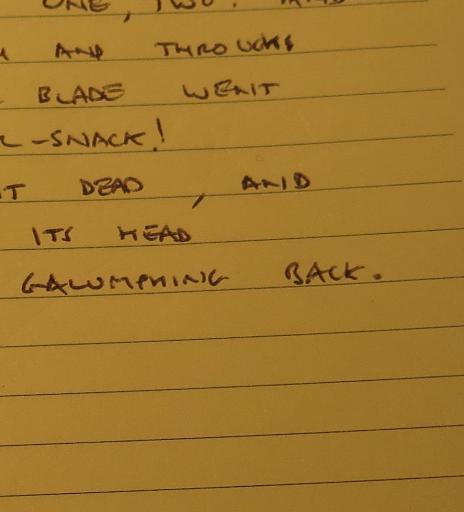 ONE, TWO! AND
AND THROUGH
BLADE WENT
-SNACK!
DEAD, AND
ITS HEAD
GALUMPHING BACK.